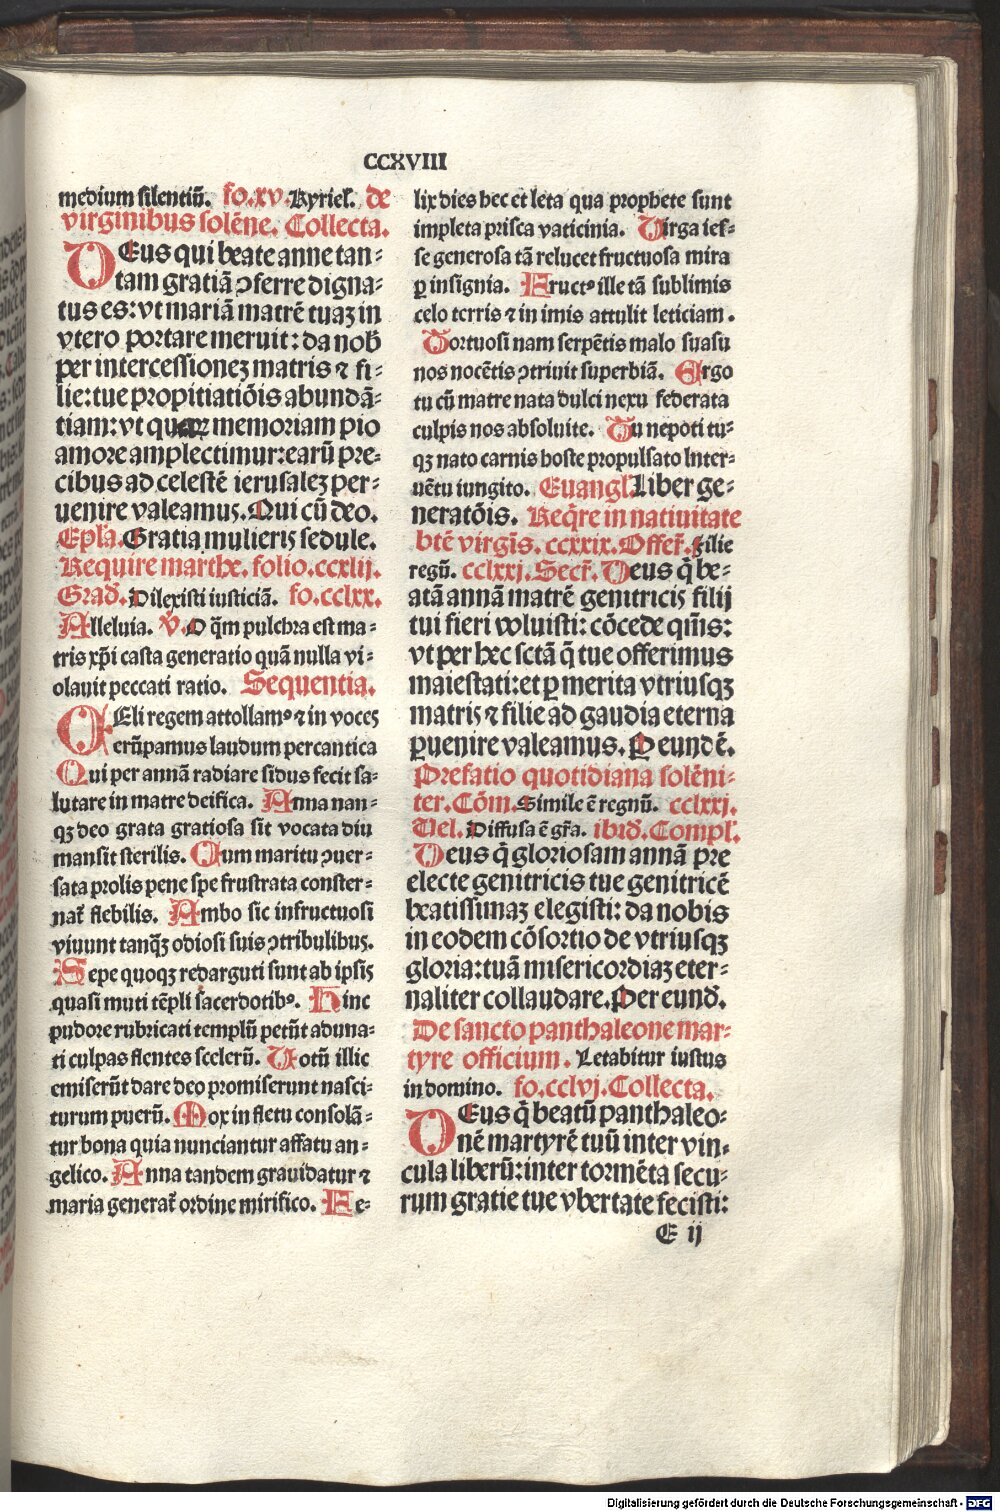 CCXVIII
medium silentiũ. fo.xv. Kyriel. de
virginibus solēne. Collecta.
DEus qui beate anne tan⸗
tam gratiā ↄferre digna⸗
tus es: vt mariā matrē tuaʒ in
vtero portare meruit: da nob̄
per intercessioneʒ matris ⁊ fi⸗
lie: tue propitiatiōis abundā⸗
tiam: vt quaꝝ memoriam pio
amore amplectimur: earū pre⸗
cibus ad celestē ierusaleʒ per⸗
uenire valeamus. Qui cū deo.
Epl̄a. Gratia mulieris sedule.
Require marthe. folio. ccxlij.
Grad̄. Dilexisti iusticiā. fo. cclxx.
Alleluia. v̄. O q̄m pulchra est ma⸗
tris xp̄i casta generatio quā nulla vi⸗
olauit peccati ratio. Sequentia.
CEli regem attollamꝰ ⁊ in voces
erūpamus laudum per cantica
Qui per annā radiare sidus fecit sa⸗
lutare in matre deifica. Anna nan⸗
qʒ deo grata gratiosa sit vocata diu
mansit sterilis. Cum maritu ↄuer⸗
sata prolis pene spe frustrata conster⸗
nat̄ flebilis. Ambo sic infructuosi
viuunt tanqʒ odiosi suis ↄtribulibus.
Sepe quoqʒ redarguti sunt ab ipsis
quasi muti tēpli sacerdotibꝰ. Hinc
pudore rubricati templū petūt aduna⸗
ti culpas flentes scelerū. Uotū illic
emiserūt dare deo promiserunt nasci⸗
turum puerū. Mox in fletu consolā⸗
tur bona quia nunciantur affatu an⸗
gelico. Anna tandem grauidatur ⁊
maria generat̄ ordine mirifico. Fe⸗
lix dies hec et leta qua prophete sunt
impleta prisca vaticinia. Uirga ies⸗
se generosa tā relucet fructuosa mira
ꝑ insignia. Fructꝰ ille tā sublimis
celo terris ⁊ in imis attulit leticiam.
Tortuosi nam serpētis malo suasu
nos nocētis ↄtriuit superbiā. Ergo
tu cū matre nata dulci nexu federata
culpis nos absoluite. Tu nepoti tu⸗
qʒ nato carnis hoste propulsato inter⸗
uētu iungito. Euangl̄. Liber ge⸗
neratōis. Req̄re in natiuitate
btē virgīs. ccxxix. Offer̄. Filie
regū. cclxxj. Secr̄. Deus q̄ be⸗
atā annā matrē genitricis filij
tui fieri voluisti: cōcede q̄m̄s:
vt per hec sctā q̄ tue offerimus
maiestati: et ꝑ merita vtriusqʒ
matris ⁊ filie ad gaudia eterna
ꝑuenire valeamus. P eundē.
Prefatio quotidiana solēni⸗
ter. Cōm. Simile ē regnū. cclxxj.
Uel. Diffusa ē gr̄a. ibid̄. Compl̄.
Deus q̄ gloriosam annā pre
electe genitricis tue genitricē
beatissimaʒ elegisti: da nobis
in eodem cōsortio de vtriusqʒ
gloria: tuā misericordiaʒ eter⸗
naliter collaudare. Per eund̄.
De sancto panthaleone mar⸗
tyre officium. Letabitur iustus
in domino. fo. cclvj. Collecta.
DEus q̄ beatū panthaleo⸗
nē martyrē tuū inter vin⸗
cula liberū: inter tormēta secu⸗
rum gratie tue vbertate fecisti:
E ij
Digitalisierung gefördert durch die Deutsche Forschungsgemeinschaft - DFG